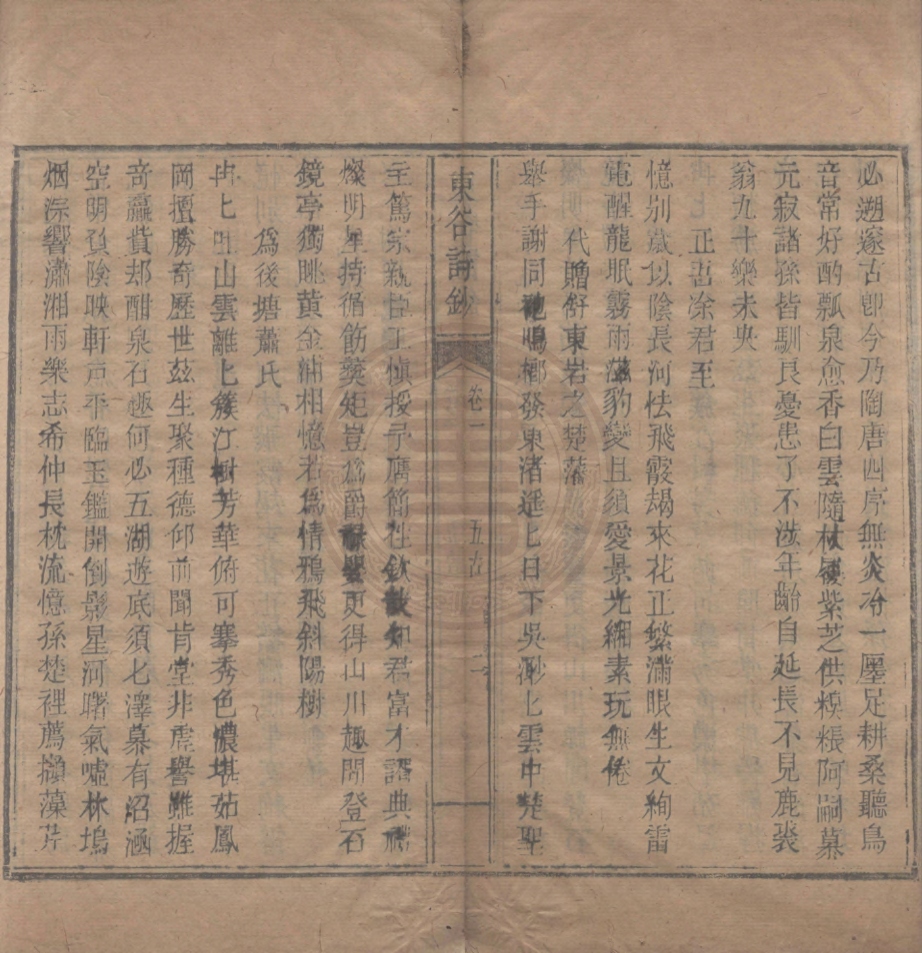 必遡邃古卽今乃陶唐四序無炎冷一廛足耕桑聽鳥
音常好酌瓢泉愈香白雲隨杖履紫芝供糗粻阿嗣慕
元寂諸孫皆馴良憂患了不涉年齡自延長不見鹿裘
翁九十樂未央
正峀凃君至
憶别歲以陰長河怯飛霰朅來花正繁滿眼生文絢雷
電醒龍眠霧雨澤豹變且須愛景光緗素玩無倦
代贈舒東岩之楚藩
舉手謝同袍鳴榔發東渚遥七日下吳渺七雲中楚聖
主篤宗親臣工愼授予鴈簡往欽哉知君富才諝典禮
燦明星持循飭䂓矩豈爲爵祿嬰更得山川趣閒登石
鏡亭獨眺黄金浦相憶若爲情鴉飛斜陽樹
爲後塘蕭氏
冉七吐山雲離七簇江樹芳華俯可搴秀色儂堪茹鳳
岡擅勝奇歷世兹生聚種德仰前聞肯堂非虗譽雖握
奇贏貲却酣泉石趣何必五湖遊底須七澤慕有沼涵
空明負陰映軒戸平臨玉鑑開倒影星河曙氣噓林塢
烟淙響瀟湘雨樂志希仲長枕流憶孫楚裡薦擷藻芹
東谷詩鈔
卷一
五古
二